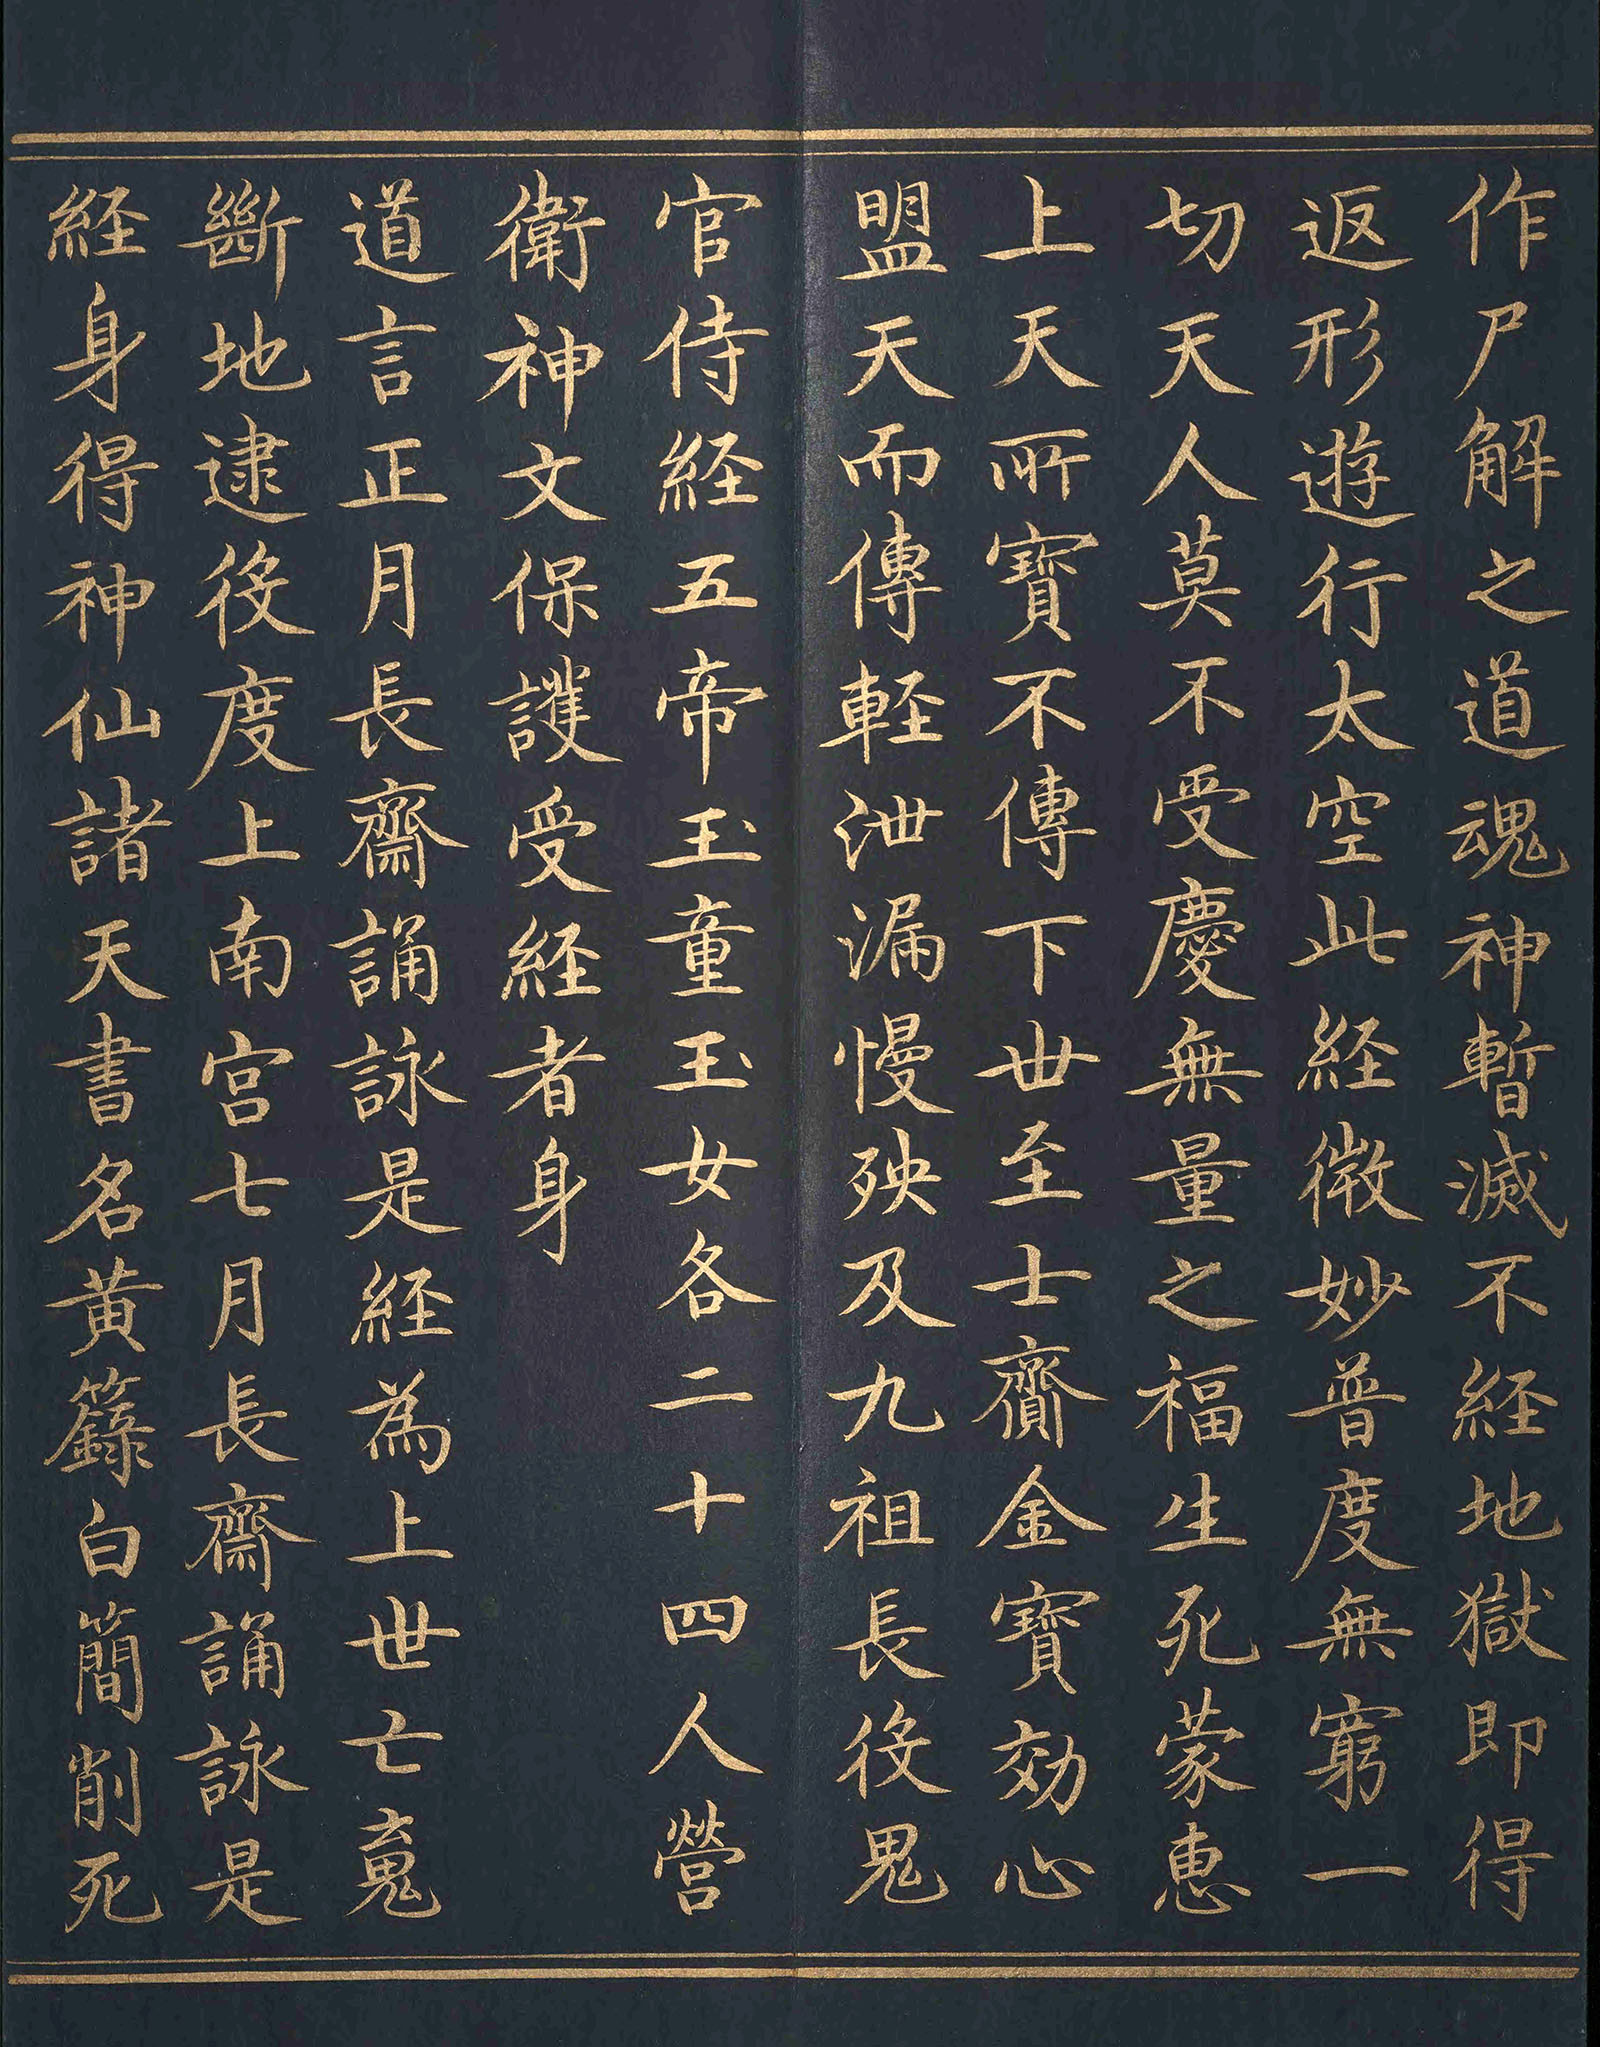 作尸解之道魂神暫滅不経地獄即得
返形遊行太空此経微妙普度無窮一
切天人莫不受慶無量之福生死蒙恵
上天所寶不傳下世至士齎金寶効心
盟天而傳軽泄漏慢殃及九祖長役鬼
官侍経五帝玉童玉女各二十四人營
衛神文保護受経者身
道言正月長齋誦詠是経為上世亡䰟
斷地逮役度上南宮七月長齋誦詠是
経身得神仙諸天書名黃籙白簡削死